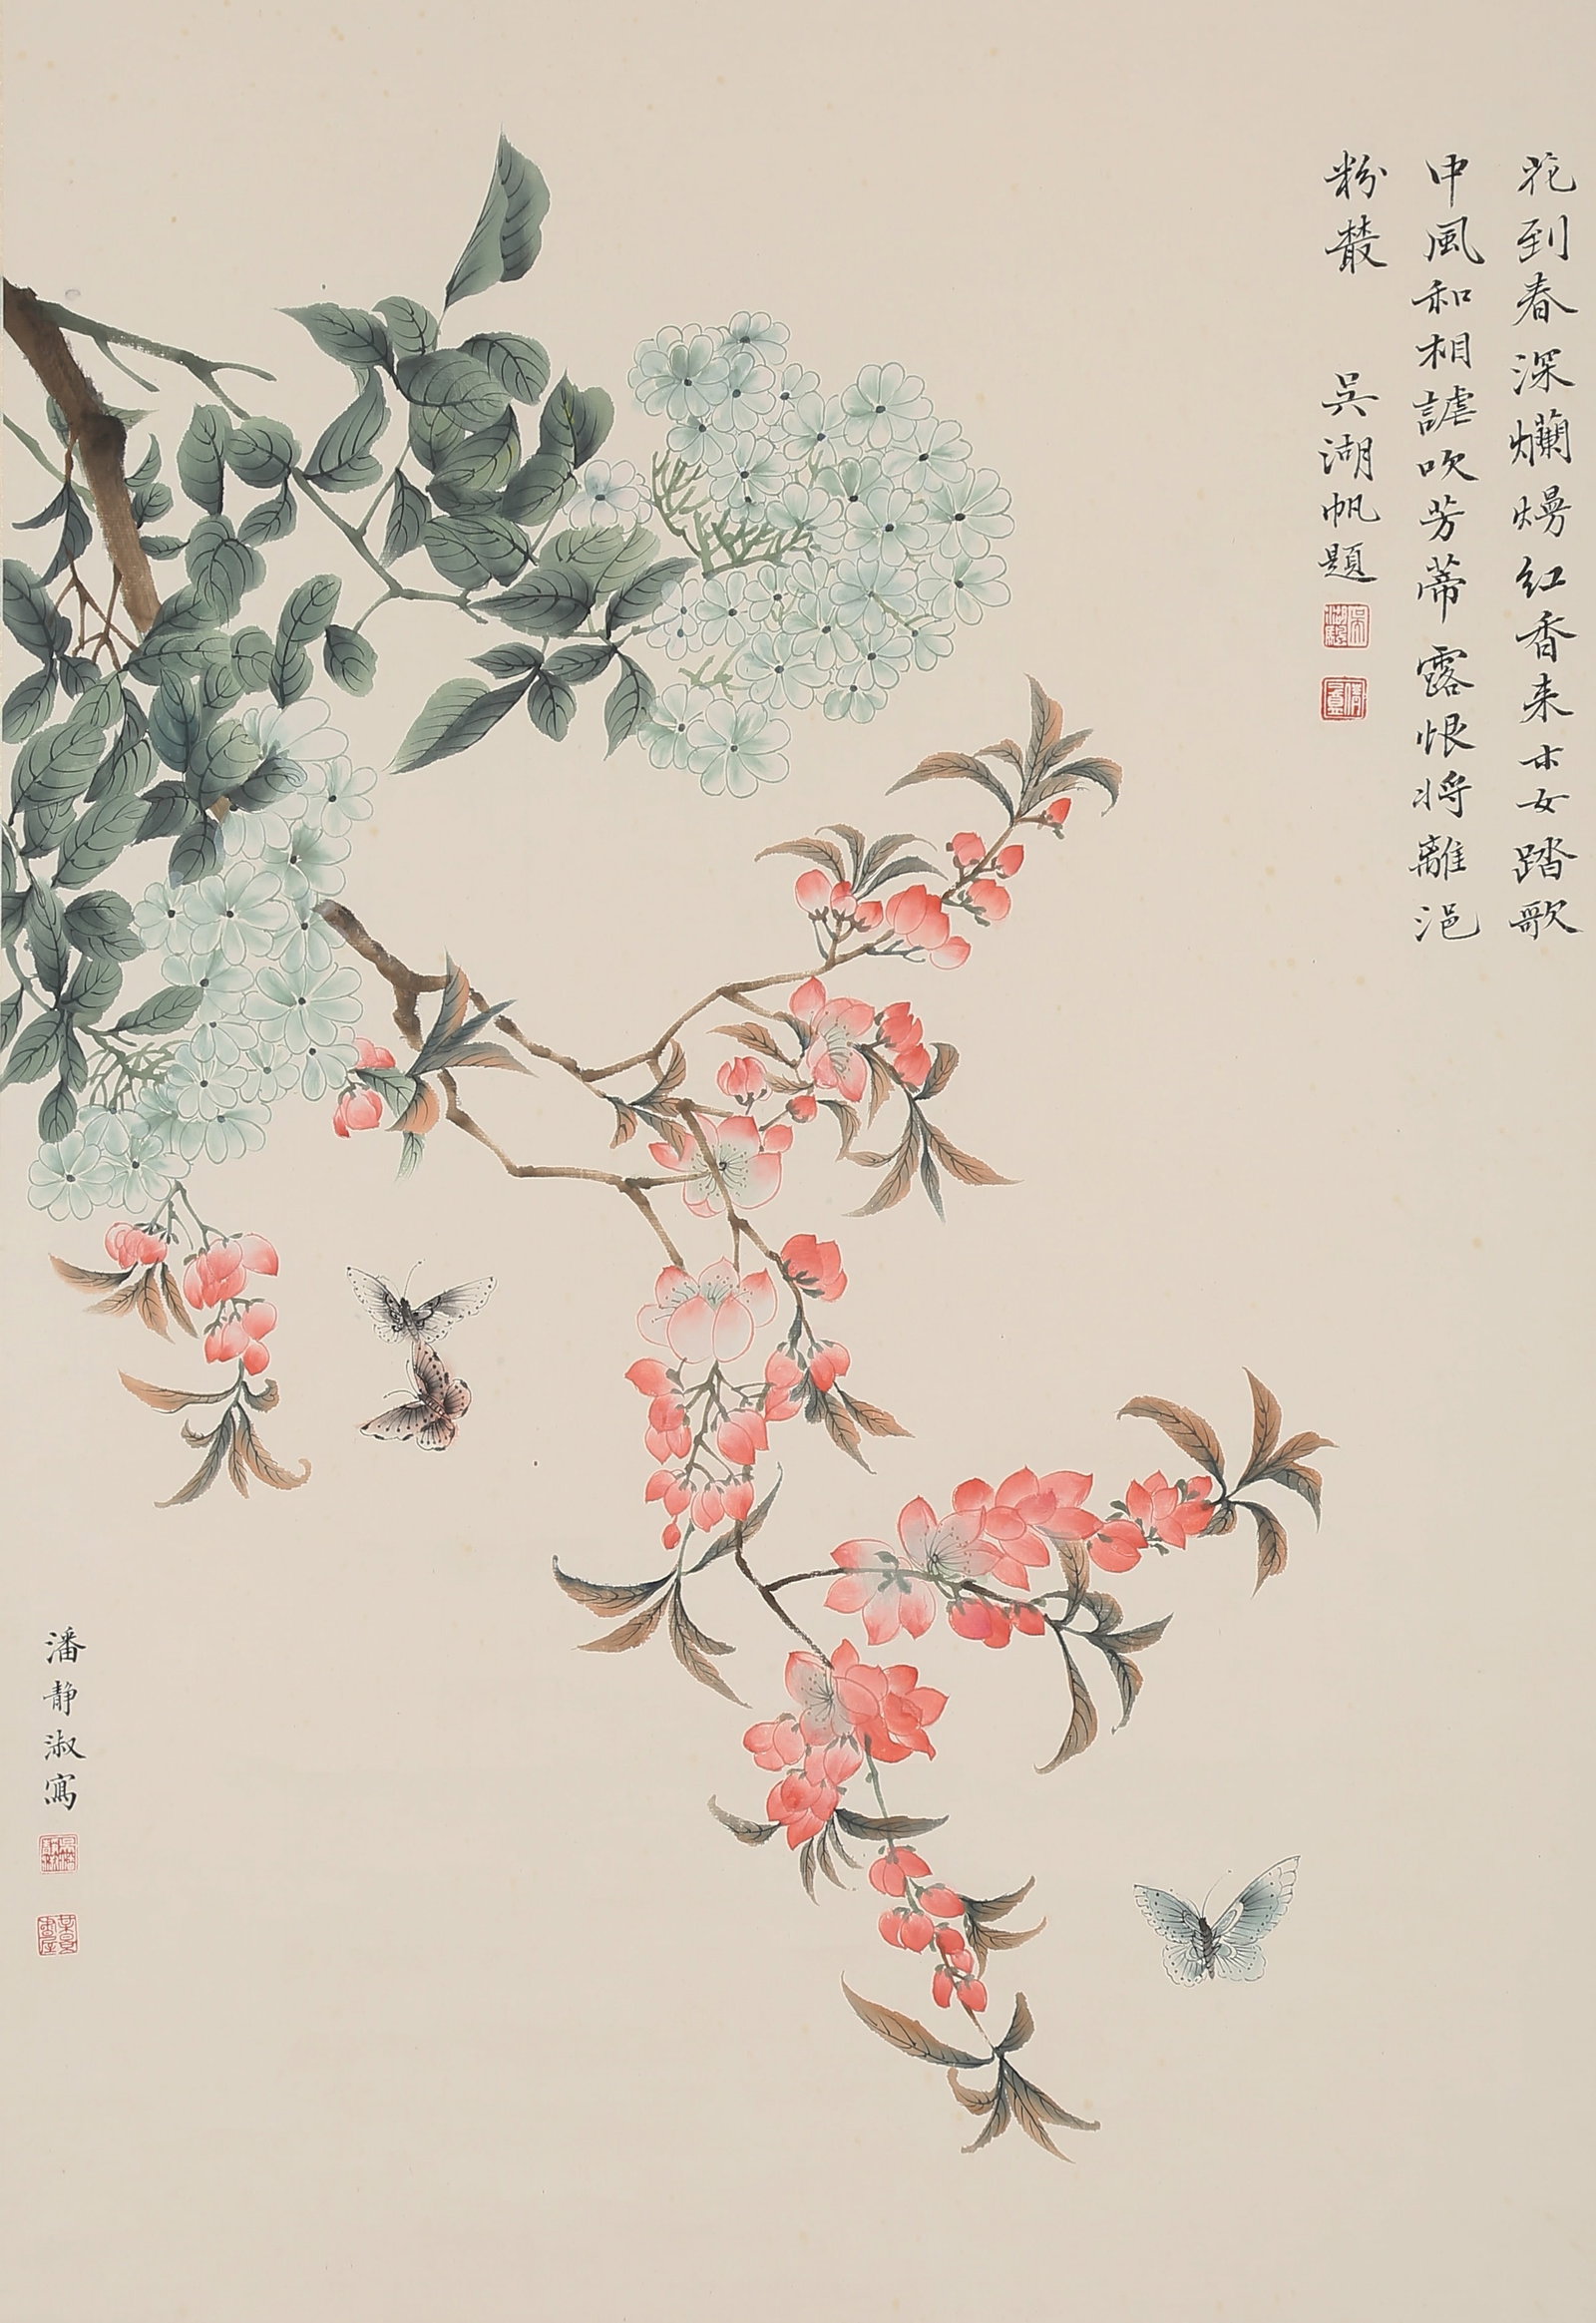 花到春深爛熳紅香来士女踏歌
中風和相謔吹芳蒂露恨將離浥
粉叢
吳湖帆題
潘静淑寫